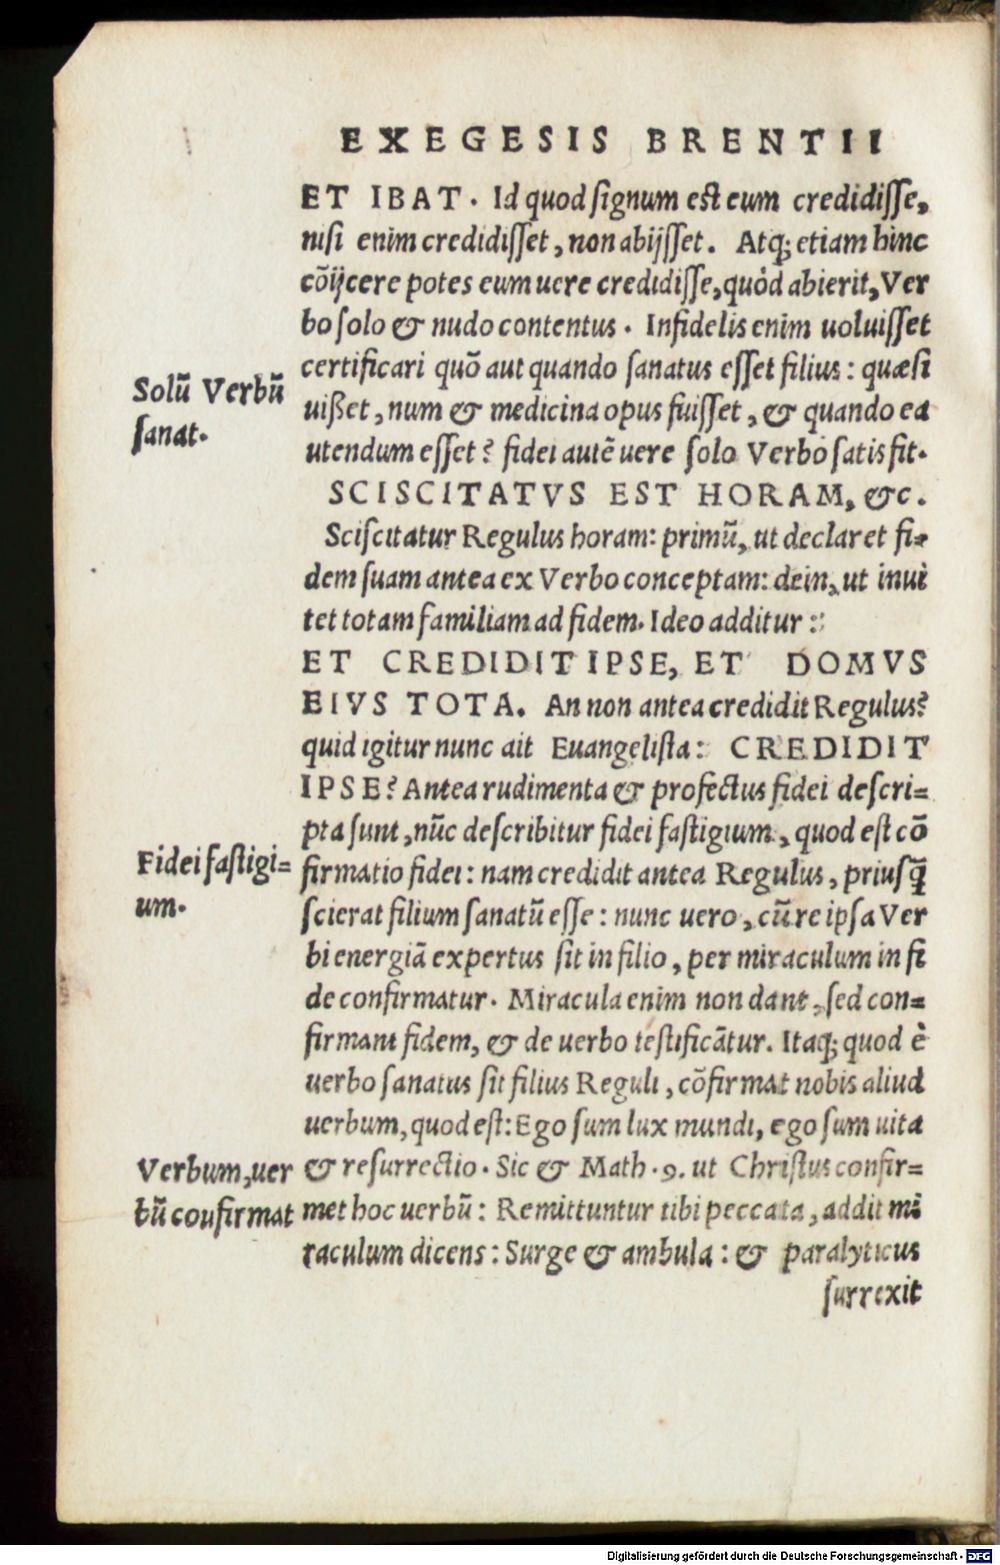 EXEGESIS BRENTII
ET IBAT. Id quod signum est eum credidisse,
nisi enim credidisset, non abijsset. Atq; etiam hinc
cōijcere potes eum uere credidisse, quòd abierit, Ver
bo solo & nudo contentus. Infidelis enim uoluisset
certificari quō aut quando sanatus esset filius: quæsi
uißet, num & medicina opus fuisset, & quando ea
utendum esset? fidei autē uere solo Verbo satis fit.
Solū Verbū
sanat.
SCISCITATVS EST HORAM, &c.
Sciscitatur Regulus horam: primū, ut declaret fi-
dem suam antea ex Verbo conceptam: dein, ut inui
tet totam familiam ad fidem. Ideo additur:
ET CREDIDIT IPSE, ET DOMVS
EIVS TOTA. An non antea credidit Regulus?
quid igitur nunc ait Euangelista: CREDIDIT
IPSE? Antea rudimenta & profectus fidei descri-
pta sunt, nūc describitur fidei fastigium, quod est cō
firmatio fidei: nam credidit antea Regulus, priusq̄
scierat filium sanatū esse: nunc uero, cū re ipsa Ver
bi energiā expertus sit in filio, per miraculum in fi
de confirmatur. Miracula enim non dant, sed con-
Fidei fastigi-
um.
firmant fidem, & de uerbo testificātur. Itaq; quod è
uerbo sanatus sit filius Reguli, cōfirmat nobis aliud
uerbum, quod est: Ego sum lux mundi, ego sum uita
& resurrectio. Sic & Math. 9. ut Christus confir-
met hoc uerbū: Remittuntur tibi peccata, addit mi
raculum dicens: Surge & ambula: & paralyticus
Verbum, uer
bū coufirmat
surrexit
Digitalisierung gefördert durch die Deutsche Forschungsgemeinschaft - DFG